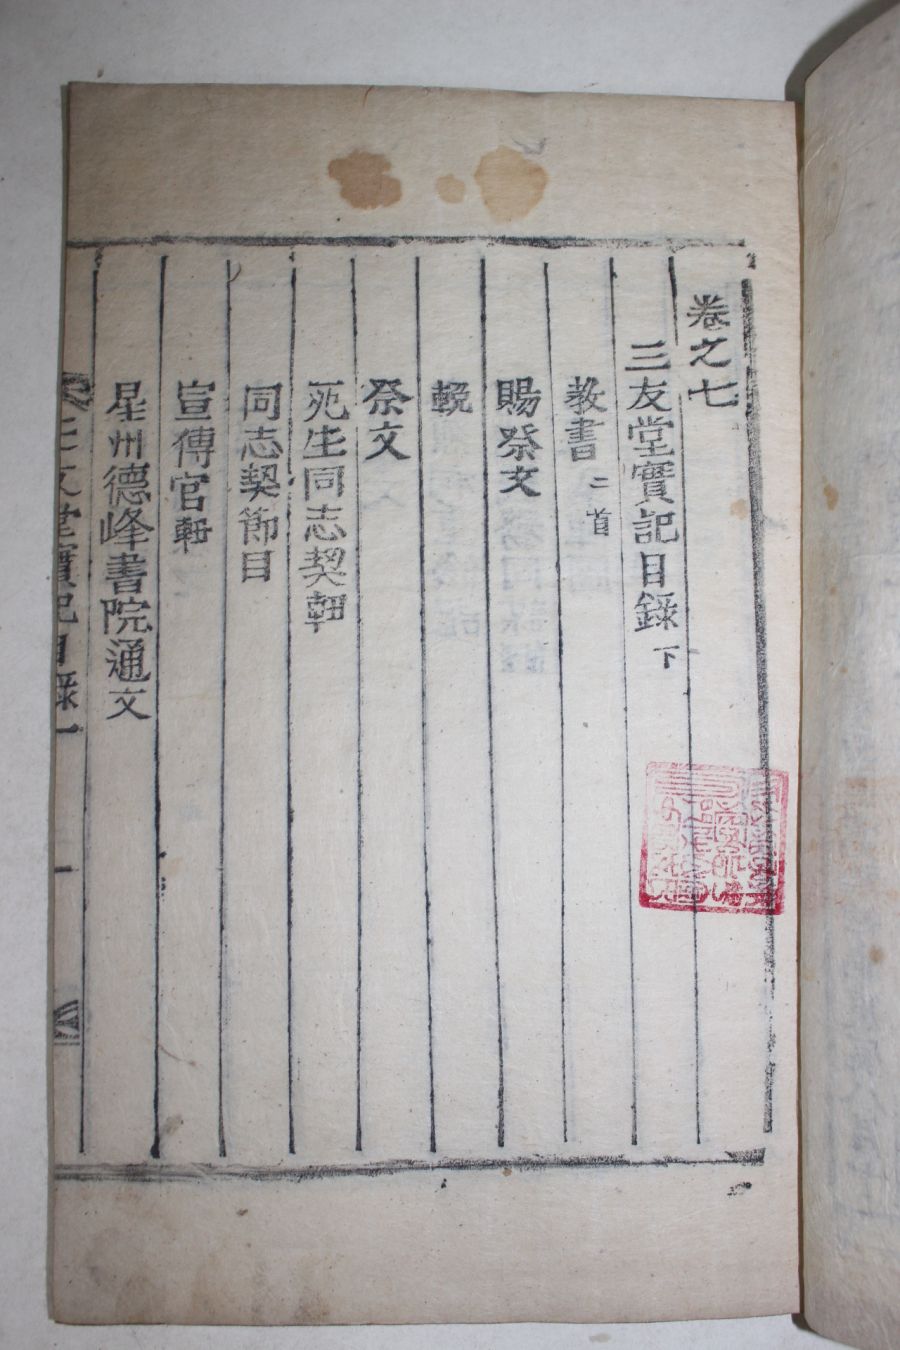 卷之七
三友堂實記目錄 下
教書 二首
賜祭文
輓
祭文
死生同志契
同志契節目
宣傳官
星州德峰書院通文
三友堂實記目錄 一